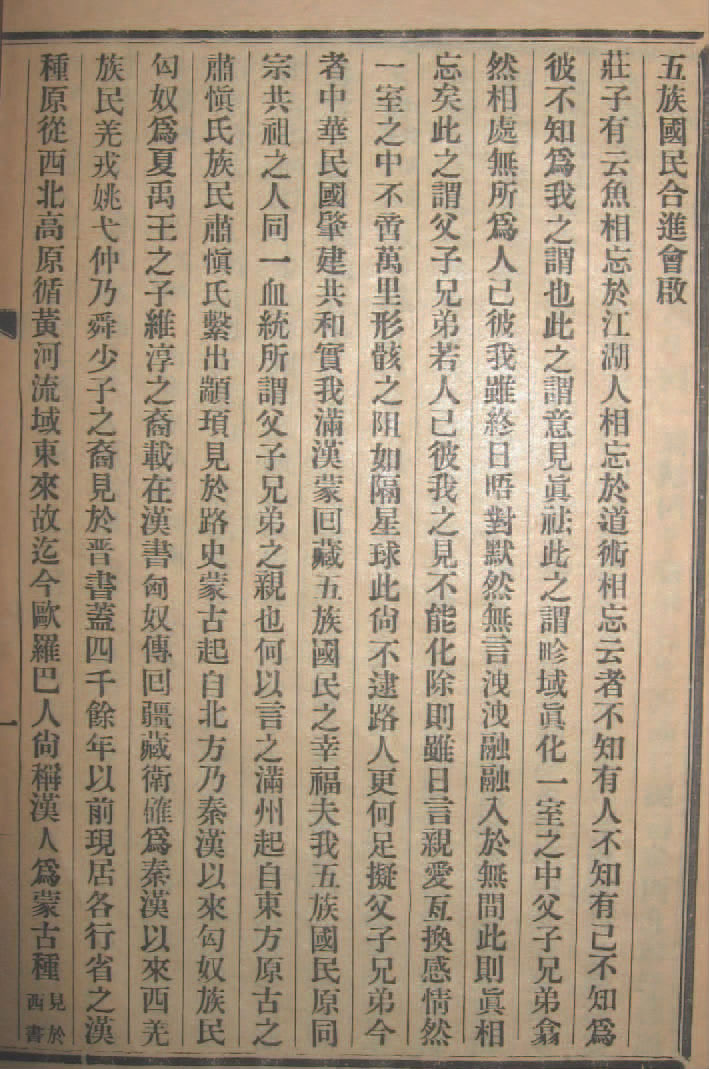 五族國民合進會啟
莊子有云魚相忘於江湖人相忘於道術相忘云者不知有人不知有己不知為
彼不知為我之謂也此之謂意見眞祛此之謂畛域眞化一室之中父子兄弟翕
然相處無所為人己彼我雖終日晤對默然無言洩洩融融入於無間此則眞相
忘矣此之謂父子兄弟若人己彼我之見不能化除則雖日言親愛互換感情然
一室之中不啻萬里形骸之阻如隔星球此尙不逮路人更何足擬父子兄弟今
者中華民國肇建共和實我滿漢蒙回藏五族國民之幸福夫我五族國民原同
宗共祖之人同一血統所謂父子兄弟之親也何以言之滿州起自東方原古之
肅愼氏族民肅愼氏繫出顓頊見於路史蒙古起自北方乃秦漢以來匈奴族民
匈奴為夏禹王之子維淳之裔載在漢書匈奴傳回疆藏衛確為秦漢以來西羌
族民羌戎姚弋仲乃舜少子之裔見於晋書蓋四千餘年以前現居各行省之漢
種原從西北高原循黃河流域東來故迄今歐羅巴人尙稱漢人為蒙古種見於西書
一